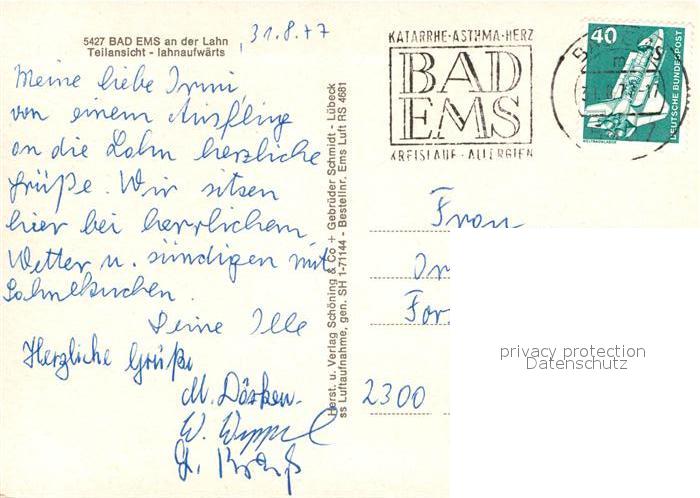 5427 BAD EMS an der Lahn
Teilansicht - lahnaufwärts
31.8.77
Meine liebe Irmi,
von einem Ausflug
an die Lahn herzliche
Grüße. Wir sitzen
hier bei herrlichem
Wetter u. sündigen mit
Sahnekuchen.
Deine Ille
Herzliche Grüße
M.
W. Wippel
Herst. u. Verlag Schöning & Co + Gebrüder Schmidt - Lübeck
ss Luftaufnahme, gen. SH 1-71144 - Bestellnr. Ems Luft RS 4681
KATARRHE·ASTHMA·HERZ
BAD
EMS
KREISLAUF·ALLERGIEN
40
DEUTSCHE BUNDESPOST
WELTRAUMLABOR
Frau
2300
privacy protection
Datenschutz